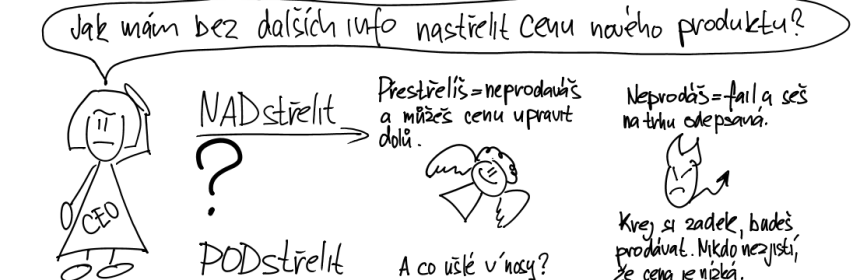 Jak mám bez dalších info nastřelit cenu nového produktu?
NADstřelit
Přestřelíš=neprodáváš
a můžeš cenu upravit
dolů.
Neprodáš=fail a seš
na trhu odepsaná.
?
CEO
PODstřelit
A co ušlé výnosy?
Krej si zadek, budeš
prodávat. Nikdo nezjistí,
že cena je nízká.